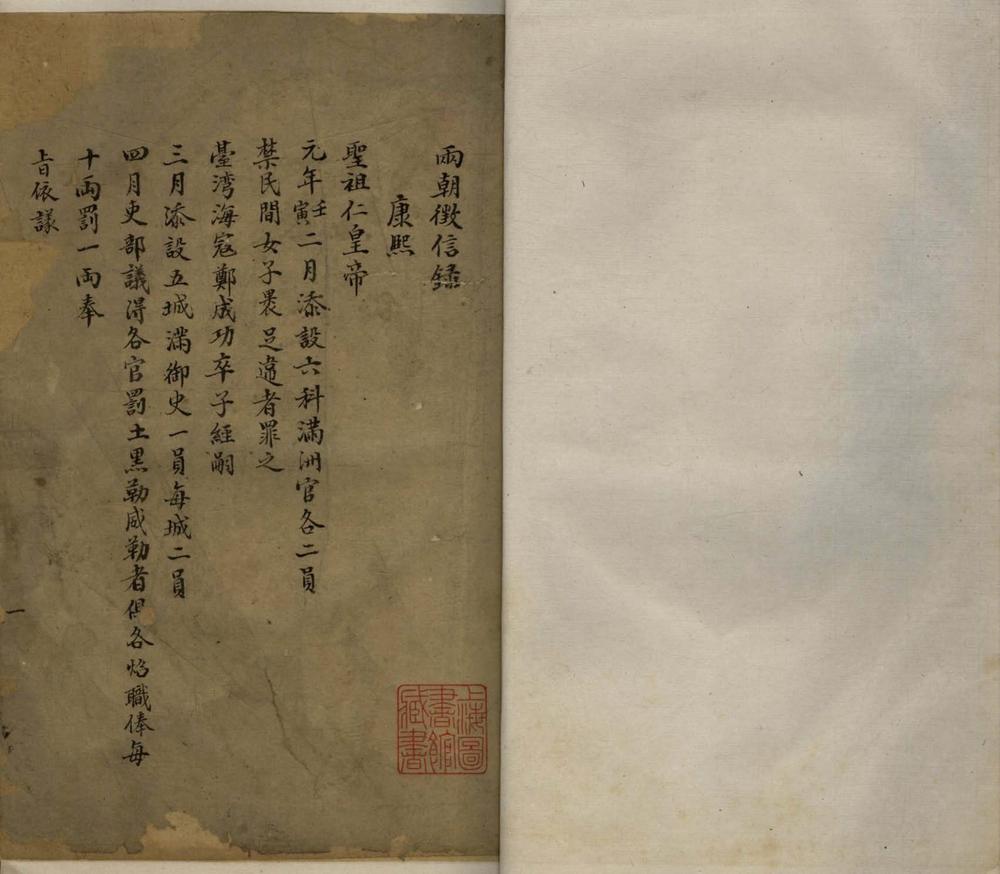 兩朝徵信錄
康熙
聖祖仁皇帝
元年壬寅二月添設六科滿洲官各二員
禁民間女子裹足違者罪之
臺灣海寇鄭成功卒子經嗣
三月添設五城滿御史一員每城二員
四月吏部議得各官罰土黑勒威勒者俱各炤職俸每
十兩罰一兩奉
旨依議
一
上海圖書館藏書